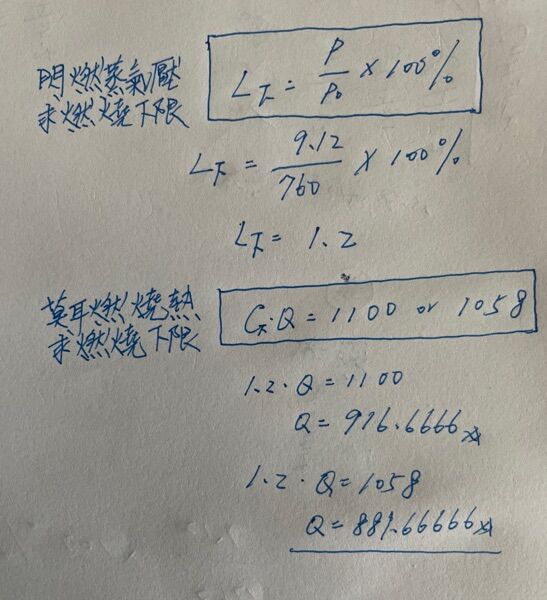 閃燃蒸氣壓
求燃燒下限
L下 = P/P₀ × 100%
L下 = 9.12/760 × 100%
L下 = 1.2
莫耳燃燒熱
求燃燒下限
C下·Q = 1100 or 1058
1.2·Q = 1100
Q = 916.6666
1.2·Q = 1058
Q = 881.66666